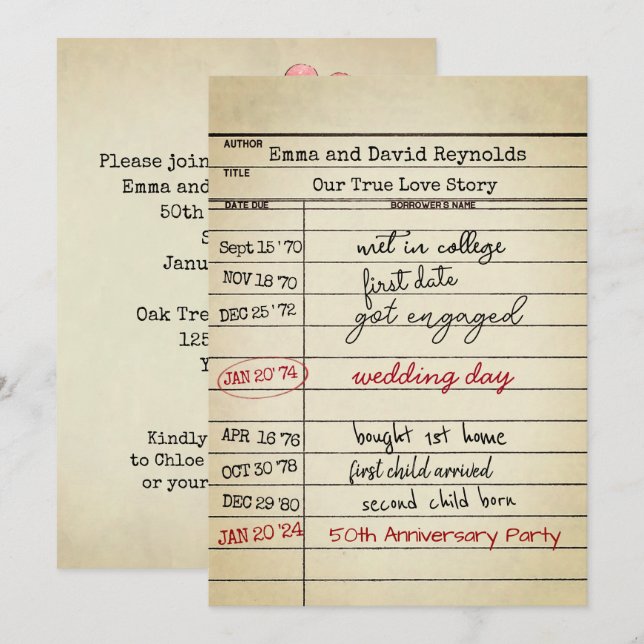 Please join
Emma and
50th
S
Janu
Oak Tre
125
Y
Kindly
to Chloe
or your
AUTHOR Emma and David Reynolds
TITLE Our True Love Story
DATE DUE BORROWER'S NAME
Sept 15 '70 met in college
NOV 18 '70 first date
DEC 25 '72 got engaged
JAN 20 '74 wedding day
APR 16 '76 bought 1st home
OCT 30 '78 first child arrived
DEC 29 '80 second child born
JAN 20 '24 50th Anniversary Party